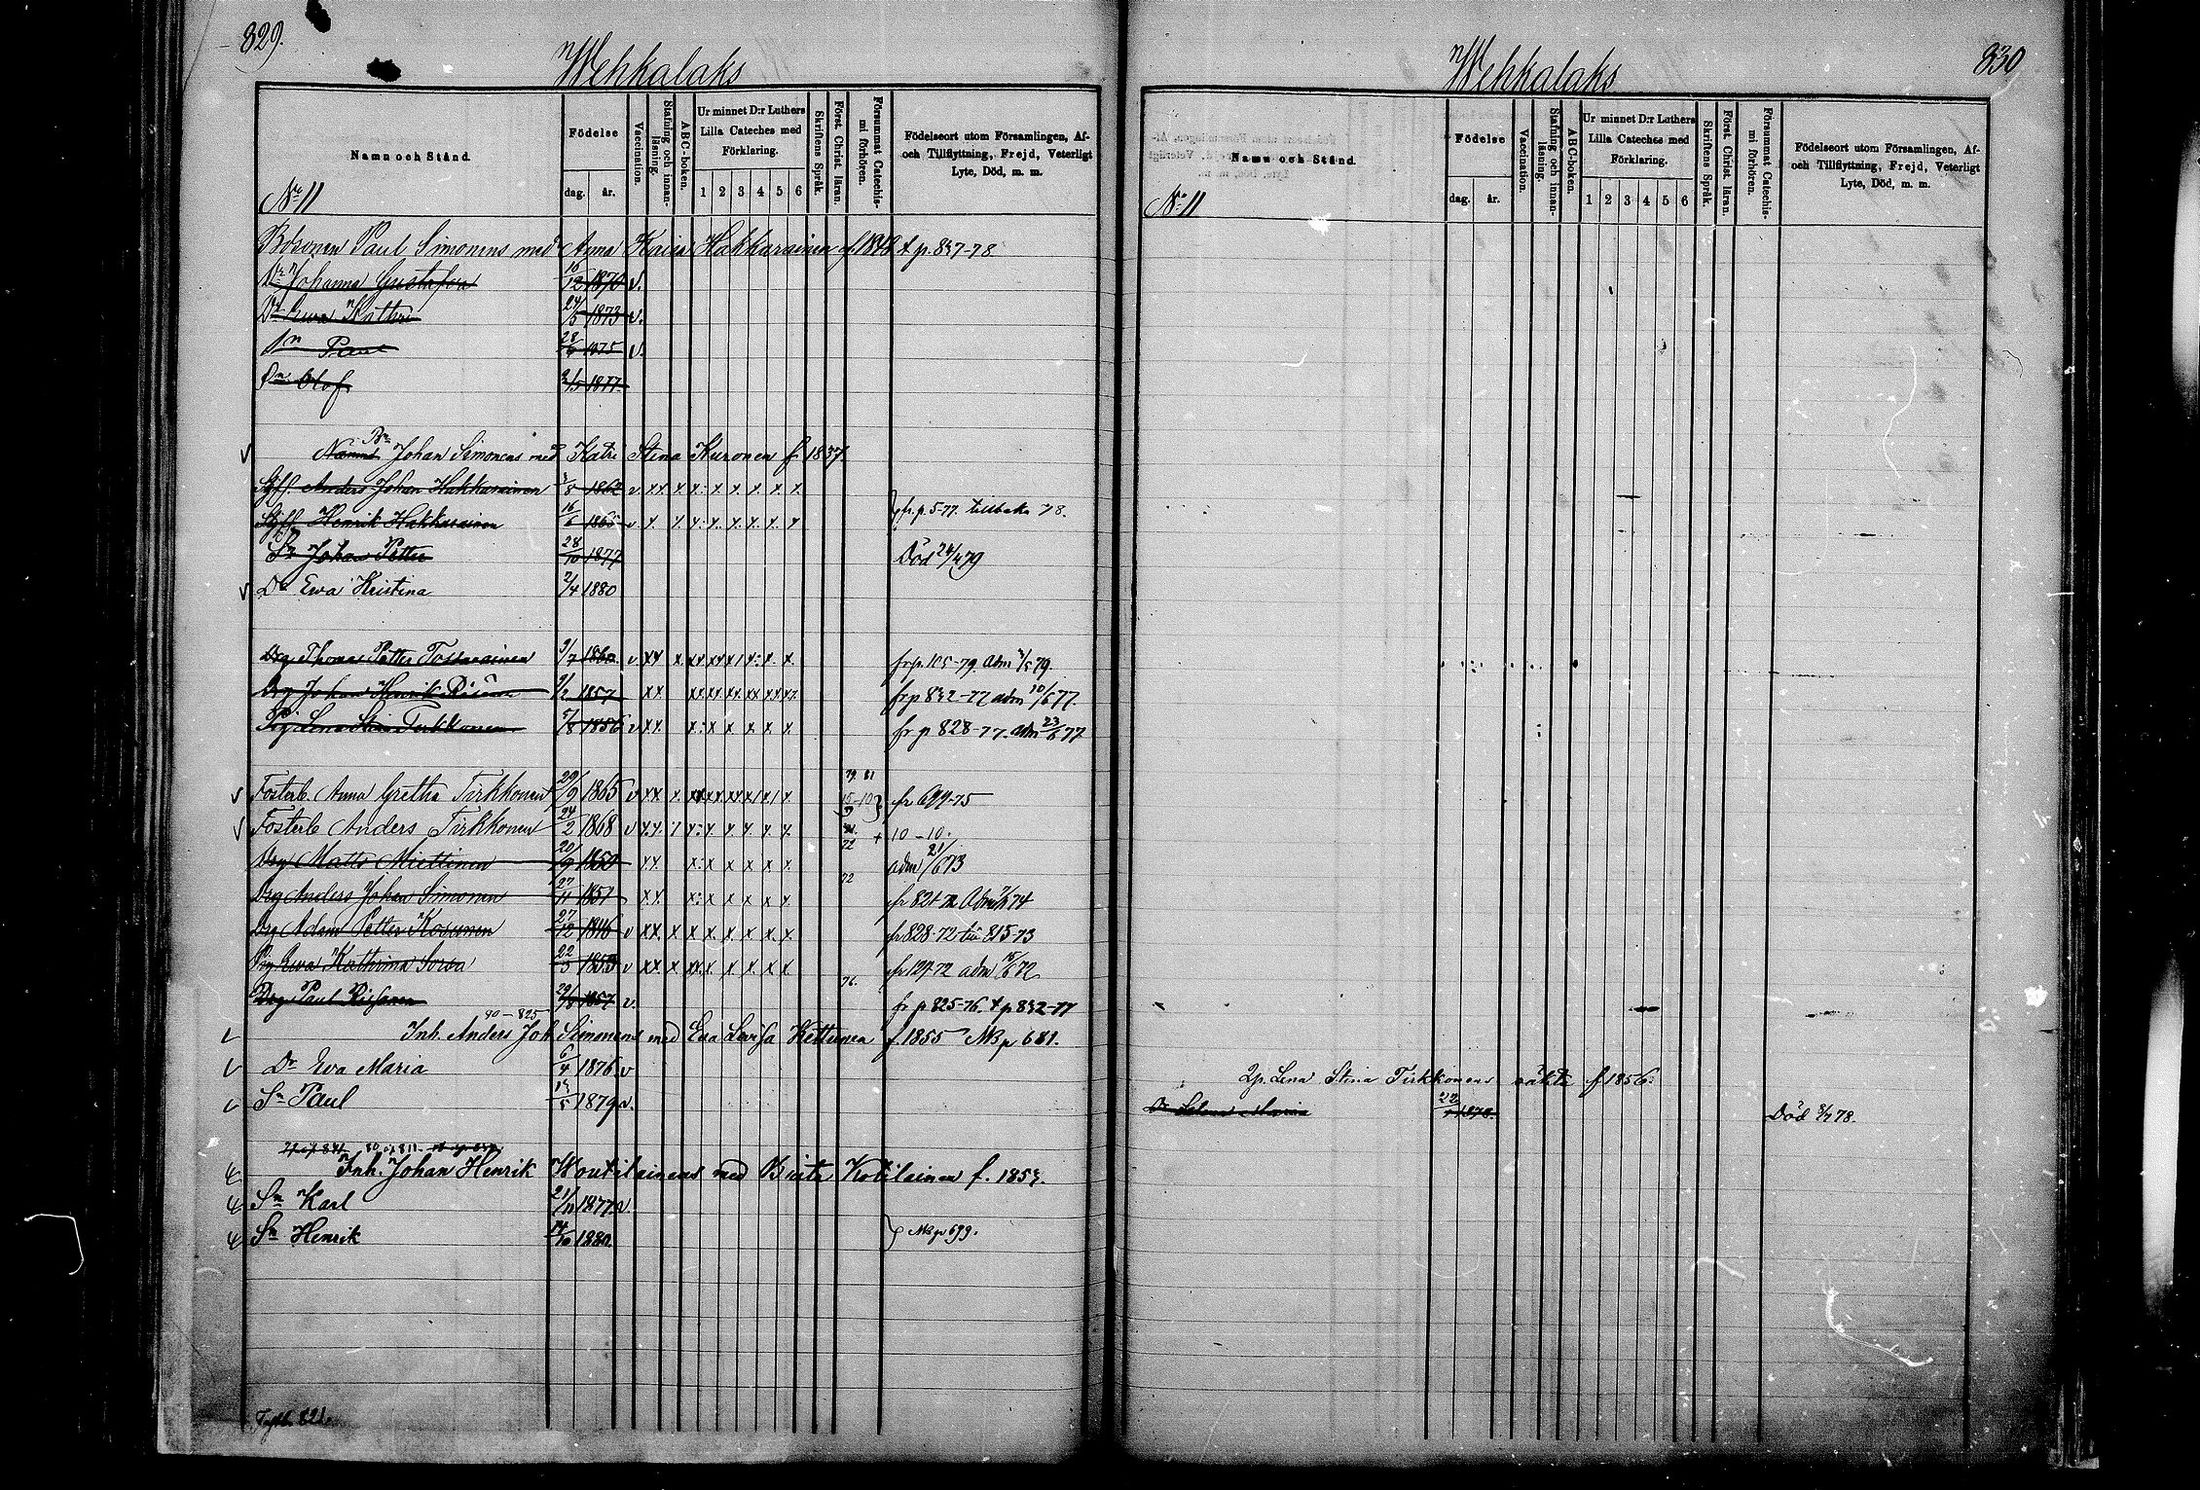 829.
Wehkalaks
Namn och Stånd.
Födelse
dag. år.
Vaccination.
Stafning och innanläsning.
ABC-boken.
Ur minnet D:r Luthers Lilla Cateches med Förklaring.
1 2 3 4 5 6
Skriftens Språk.
Först. Christ. läran.
Försummat Catechismi förhören.
Födelseort utom Församlingen, Af- och Tillflyttning, Frejd, Veterligt Lyte, Död, m. m.
No 11
Paul Simonens med Anna Kaisa Hakkarainen f. t p. 837-78
Dr Johanna Gustafva 16/12 1870 v.
Dr Ewa Kathr. 24/5 1873 v.
Sn Paul 1875 v.
Sn Olof 1877
Br Johan Simonens med Katri Stina Kuronen f 1837.
Styfs. Anders Johan Hakkarainen 1862 v xx x x: x x x x x
Styfs. Henrik Hakkarainen 16/6 1865 v x x x: x x x x x } fr. p. 5-77. tillbaka 78.
Sn Johan Petter 28/10 1877 Död 24/4 79
Dr Ewa Kristina 2/4 1880
Drg Thomas Petter 1860 v xx x frp. 105-79. adm 79.
Drg Johan Henrik 1/2 1857 xx frp 832-77 adm 10/6 77.
Pig Lena Stina Tirkkonen 5/8 1856 v xx x: x x x x x fr p 828-77. adm 23/6 77
79. 81
Fosterb. Anna Gretha Tirkkonen 29/9 1865 v xx x fr 699-75
Fosterb Anders Tirkkonen 24/2 1868 v x x x: x x x x x + 10-10.
72
Drg Matts Miettinen 20/9 1850 xx x: x x x x x adm 21/6 73
72
Drg Anders Johan Simonen 27/11 1851 xx x: x x x x x fr 821 74
Drg Adam Petter Kosunen 27/12 1846 v xx x x x x x x x fr 828-72 till 815-73
Pig Ewa Kathrina Sorsa 22/5 1853 v xx x fr 127-72 adm 15/6 72
76.
Drg Paul Rissanen 29/8 1857 v. fr p. 825-76. t p 832-77
90-825
Inh. Anders Joh Simonens med Eva Lovisa Kettunen f. 1855 Nb p 681.
Dr Eva Maria 6/4 1876 v
Sn Paul 1879 v.
Inh. Johan Henrik Woutilainens med Birita Kotilainen f. 1853.
Sn Karl 21/11 1877 v.
Sn Henrik 14/10 1880. } Nb p 699.
830
Wehkalaks
Namn och Stånd.
Födelse
dag. år.
Vaccination.
Stafning och innanläsning.
ABC-boken.
Ur minnet D:r Luthers Lilla Cateches med Förklaring.
1 2 3 4 5 6
Skriftens Språk.
Först. Christ. läran.
Försummat Catechismi förhören.
Födelseort utom Församlingen, Af- och Tillflyttning, Frejd, Veterligt Lyte, Död, m. m.
No 11
Qp. Lena Stina Tirkkonens oäkta f 1856:
Dr Maria 1878. Död 78.